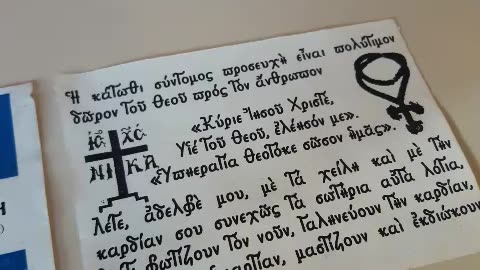 Ἡ κάτωθι σύντομος προσευχὴ εἶναι πολύτιμον
δῶρον τοῦ Θεοῦ πρός τόν ἄνθρωπον
«Κύριε Ἰησοῦ Χριστέ,
Υἱέ τοῦ Θεοῦ, ἐλέησόν με».
«Ὑπεραγία Θεοτόκε σῶσον ἡμᾶς».
ΙϹ ΧϹ
ΝΙ ΚΑ
Λέγε, ἀδελφέ μου, μὲ τὰ χείλη καί μὲ τὴν
καρδίαν σου συνεχῶς τὰ σωτήρια αὐτὰ λόγια,
φωτίζουν τόν νοῦν, γαληνεύουν τὴν καρδίαν,
μαστίζουν καί ἐκδιώκουν